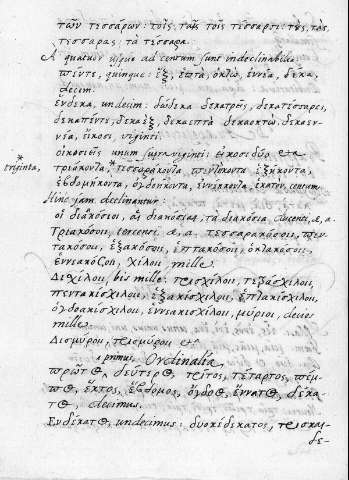 τῶν τεσσάρων: τοῖς, ταῖς τοῖς τέσσαρσι: τὺς, τὰς,
τεσσαρας: τὰ τέσσαρα.
A quatuor usque ad centum sunt indeclinabilia
πέντε, quinque: ἕξ, ἑπτὰ, ὀκτὼ, ἐννέα, δέκα,
decem.
ἕνδεκα, undecim: δώδεκα δεκατρεῖς, δεκατέσσαρες,
δεκαπέντε, δεκαέξ, δεκαεπτὰ δεκαοκτὼ, δεκαεν-
νέα, εἴκοσι, viginti.
εἰκοσιεῖς unum supra viginti: εἰκοσιδύο &a
* triginta, τριάκοντα,* τεσσαράκοντα, πεντήκοντα ἑξήκοντα,
ἑβδομήκοντα, ὀγδοήκοντα, ἐννενήκοντα, ἑκατὸν, centum.
Hinc jam declinantur:
οἱ διακόσιοι, αἱ διακόσιαι, τὰ διακόσια, ducenti, æ, a.
Τριακόσιοι, trecenti æ, a, τεσσαρακόσιοι, πεν-
τακόσιοι, ἑξακόσιοι, ἑπτακόσιοι, ὀκτακόσιοι,
ἐννεακόσιοι, χίλιοι, mille.
Δισχίλιοι, bis mille: τρισχίλιοι, τετράσχίλιοι,
πεντακισχίλιοι, ἑξακισχίλιοι, ἑπτακισχίλιοι,
ὀγδοακισχίλιοι, ἐννεακισχίλιοι, μύριοι, decies
mille.
Δισμύριοι, τρισμύριοι &
primus, Ordinalia
πρῶτος, δεύτερος τρίτος, τέταρτος, πέμ-
πτος, ἕκτος, ἕβδομος, ὄγδοος, ἔννατος, δέκα-
τος, decimus.
Ενδέκατος, undecimus: δυοκδέκατος, τρισκαι-
δε-